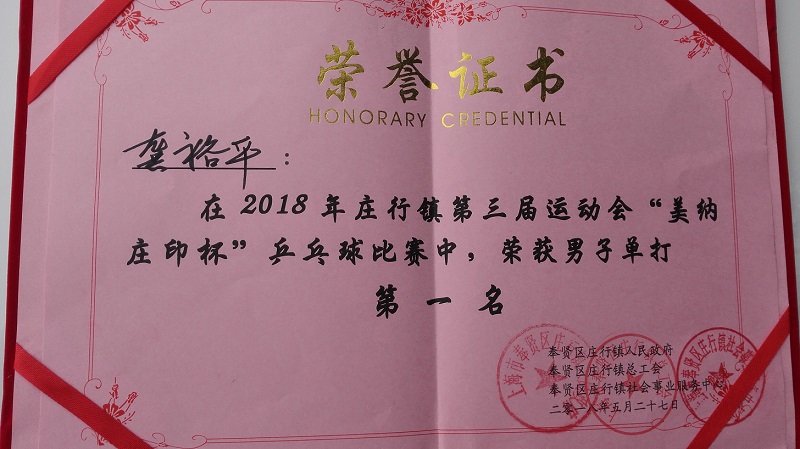 荣誉证书
HONORARY CREDENTIAL
龚裕平：
在2018年庄行镇第三届运动会“美纳
庄印杯”乒乓球比赛中，荣获男子单打
第一名
奉贤区庄行镇人民政府
奉贤区庄行镇总工会
奉贤区庄行镇社会事业服务中心
二零一八年五月二十七日